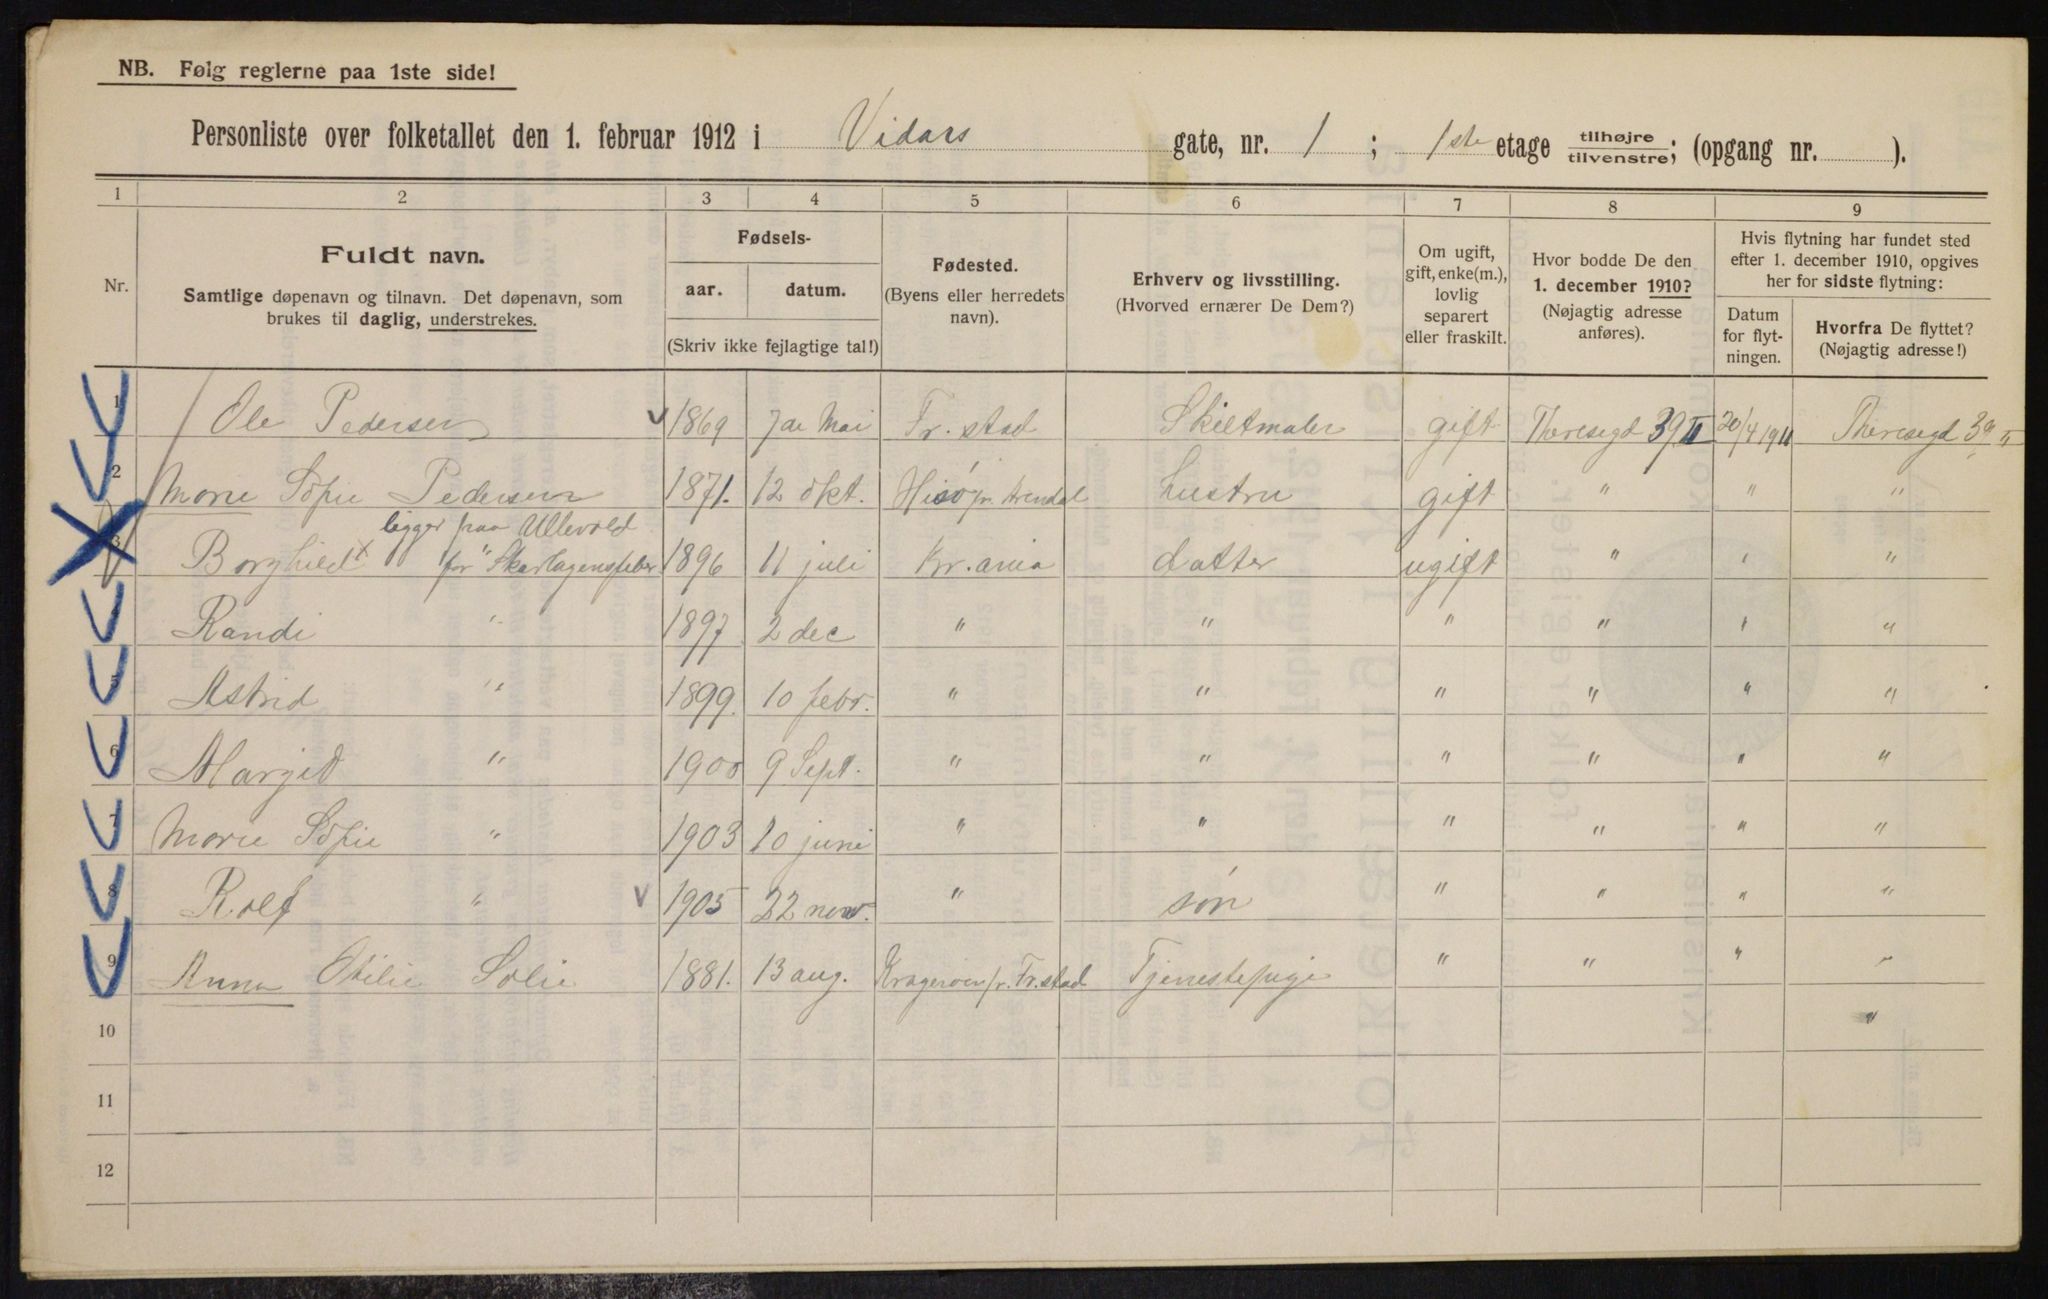 NB. Følg reglerne paa 1ste side!
Personliste over folketallet den 1. februar 1912 i Vidars gate, nr. 1 ; 1ste etage tilhøjre/tilvenstre; (opgang nr. ).
1 2 3 4 5 6 7 8 9
Nr.
Fuldt navn.
Samtlige døpenavn og tilnavn. Det døpenavn, som
brukes til daglig, understrekes.
Fødsels-
aar. datum.
(Skriv ikke fejlagtige tal!)
Fødested.
(Byens eller herredets
navn).
Erhverv og livsstilling.
(Hvorved ernærer De Dem?)
Om ugift,
gift, enke(m.),
lovlig
separert
eller fraskilt.
Hvor bodde De den
1. december 1910?
(Nøjagtig adresse
anføres).
Hvis flytning har fundet sted
efter 1. december 1910, opgives
her for sidste flytning:
Datum
for flyt-
ningen.
Hvorfra De flyttet?
(Nøjagtig adresse!)
1 Ole Pedersen 1869 7de Mai Fr. stad Skiltmaler gift Theresegd 39 II 20/4 1911 Theresegd 39 II
2 Marie Sofie Pedersen 1871. 12 okt. Hisø pr. Arendal hustru gift " " "
ligger paa Ullevold
3 Borghild x for "Skarlagensfeber 1896 11 juli Kr.ania datter ugift " " "
Randi " 1897 2 dec " " " " " "
5 Astrid " 1899. 10 febr. " " " " " "
6 Margit " 1900 9 Sept. " " " " " "
7 Marie Sofie " 1903 10 juni " " " " " "
8 Rolf " 1905 22 nov. " søn " " " "
9 Anna Otilie Solie 1881. 13 aug. Kragerøen pr. Fr.stad Tjenestepige " " " "
10 "
11
12